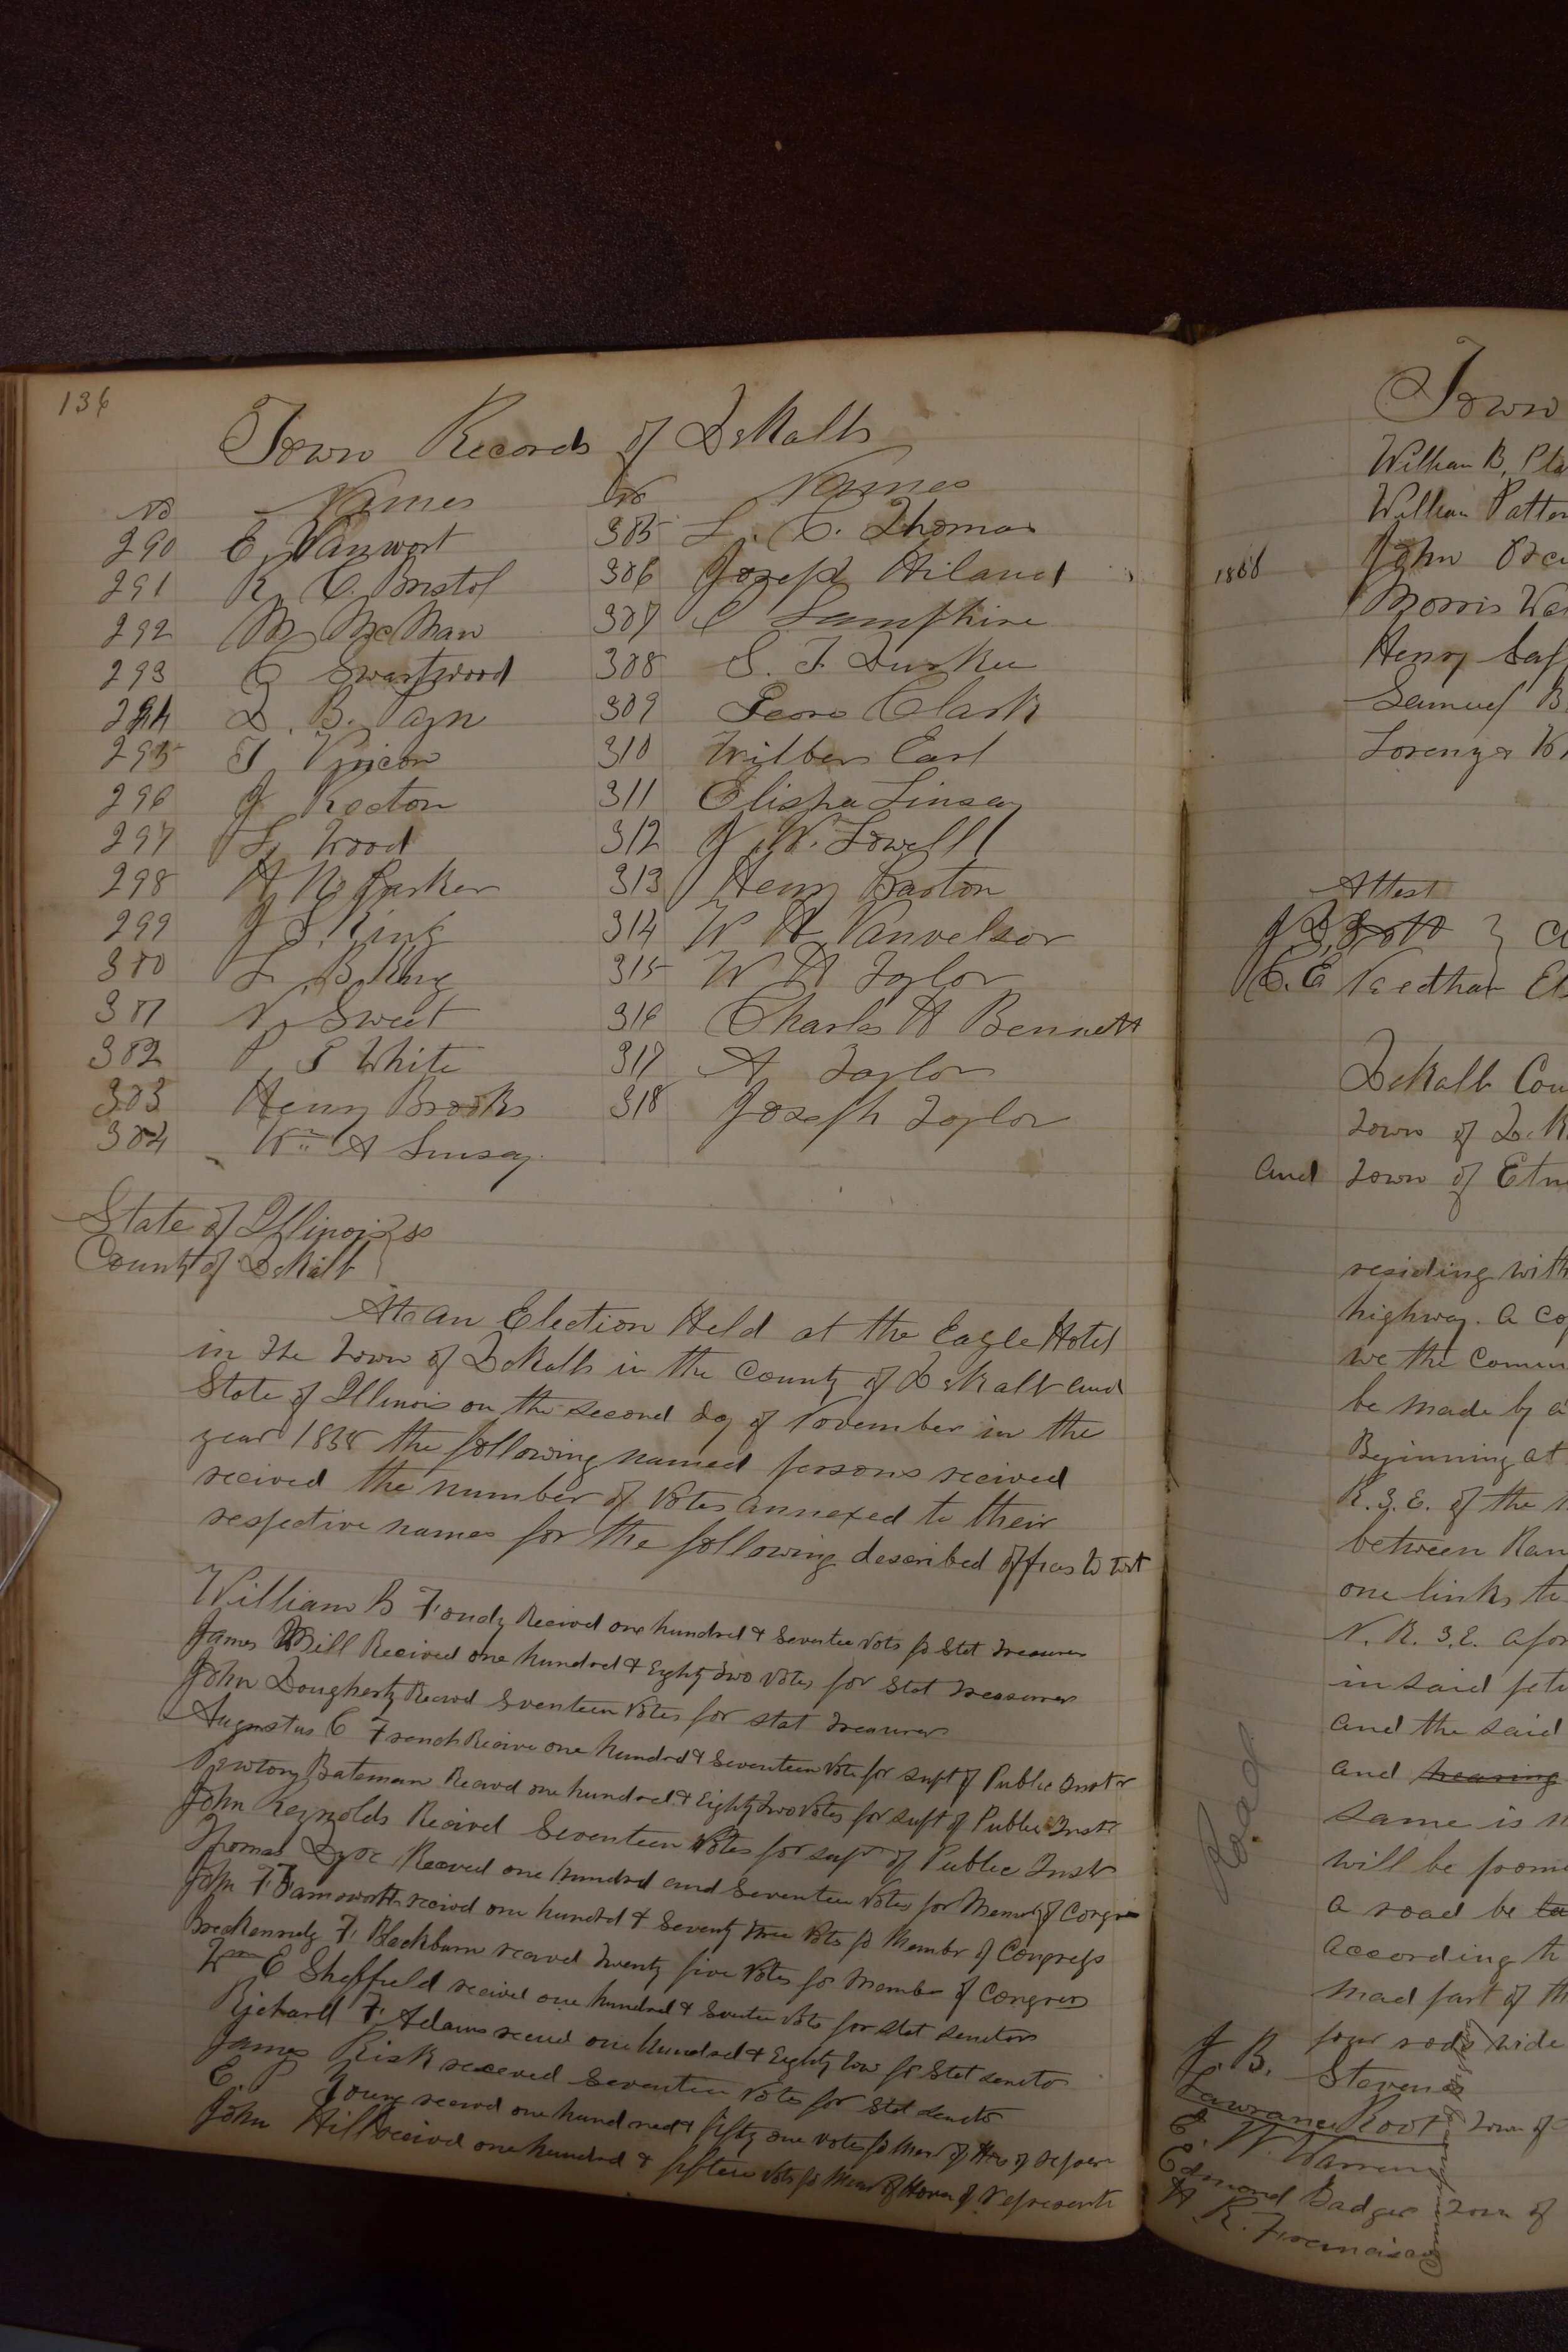 136
Town Records of DeKalb
No Names No Names
290 E. Vanwort 305 L. C. Thomas
291 R. C. Bristol 306 Joseph Hiland
292 M McMaw 307 C Lamphire
293 C Swartwood 308 S. F. Durkee
294 D. B. 309 Clark
295 J 310 Wilber Earl
296 J Rector 311 Elisha Linsay
297 L. Wood 312 J. W. Lowell
298 H. N. Parker 313 Henry Barton
299 J S. King 314 W H Vanvelsor
300 L. B. King 315 W H Taylor
301 N. Sweet 316 Charles H Bennett
302 P. S White 317 A Taylor
303 Henry Brooks 318 Joseph Taylor
304 Wm A Linsay
State of Illinois } ss
County of DeKalb
At an Election Held at the Eagle Hotel
in the Town of DeKalb in the County of DeKalb and
State of Illinois on the second day of November in the
year 1858 the following named persons recived
recived the number of Votes annexed to their
respective names for the following described offices to wit
William B Fondy Recived one hundred & Seventee Vots fo Stat Treasurer
James Mill Recived one hundred & Eighty two Votes for Stat Treasurer
John Dougherty Recivd Seventeen Votes for stat Treasurer
Augustus C French Recive one hundred & Seventeen Vote for Supt of Public Instr
Newton Bateman Recivd one hundred & Eighty two Votes for Supt of Public Instr
John Reynolds Recived Seventeen Votes for Supt of Public Instr
Thomas Dyer Recived one hundred and Seventeen Votes for Member of Congress
John F Farnsworth recivd one hundred & Seventy three Vots fo Membr of Congress
McKennedy F. Blackburn recived Twenty five Votes for Member of Congress
Wm E Sheffield recived one hundred & Seventee Vots for Stat Senetors
Richard F. Adams recivd one hundred & Eighty two for Stat Senetor
James Risk received Seventeen Votes for Stat Senetor
E. P. Young recivd one hundred & fifty one votes fo Mem of Hous of Repser
John Hill recived one hundred & fifteen Vots fo Mem of House of Represents
Town
William B. Pla
William Patter
1858 John
Morris
Henry
Samuel B
Lorenzo
Attest
J S. Scott }
C. E Needham
DeKalb Cou
Town of DeK
and Town of
residing with
highway. a cop
we the Comm
be made by a
Beginning at
R. 3. E. of the
between Ran
one links to
N. R. 3. E. afor
in said peti
and the said
Road
and hearing
same is
will be prom
a road be
according to
mad part of th
four rods wide
J. B. Stevens
Lawrance Root Town of
E. W. Warren
Edmond Badger Town of
H. R.